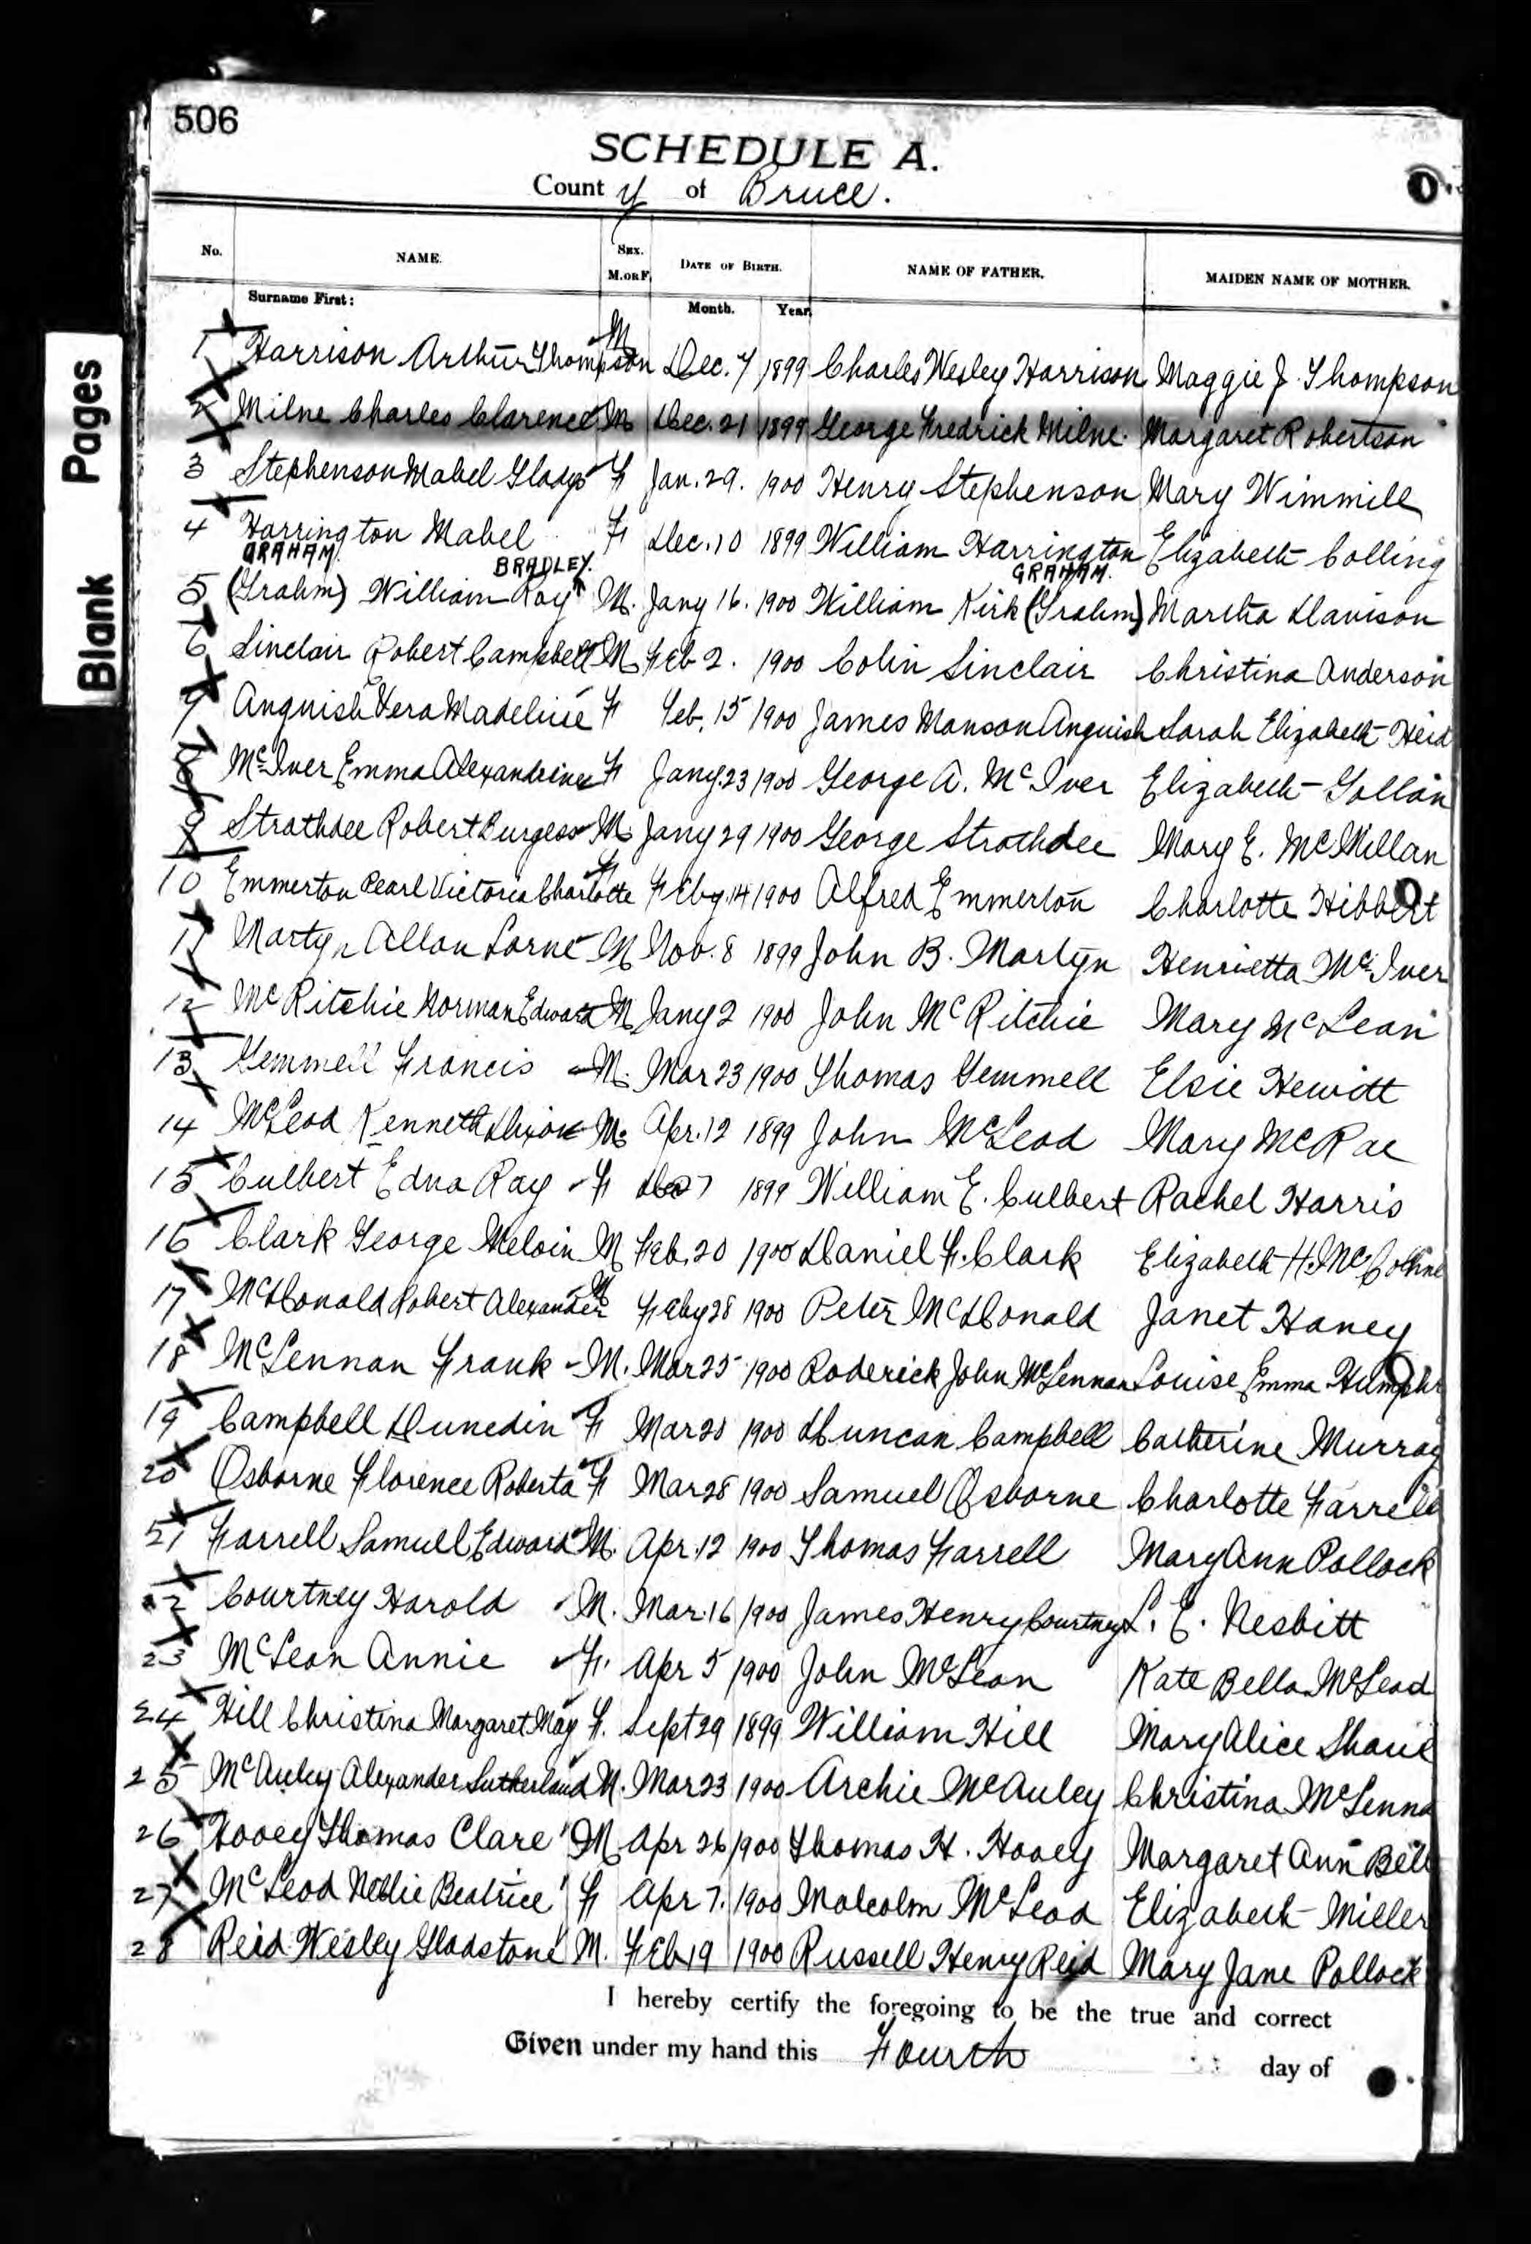 506
SCHEDULE A.
County of Bruce.
No. NAME. SEX. M. OR F. DATE OF BIRTH. NAME OF FATHER. MAIDEN NAME OF MOTHER.
Surname First: Month. Year.
Blank Pages
1 Harrison Arthur Thompson M Dec. 7 1899 Charles Wesley Harrison Maggie J. Thompson
2 Milne Charles Clarence M Dec. 21 1899 George Fredrick Milne. Margaret Robertson
3 Stephenson Mabel Gladys F Jan. 29. 1900 Henry Stephenson Mary Wimmill
4 Harrington Mabel F Dec. 10 1899 William Harrington Elizabeth Colling
GRAHAM. BRADLEY. GRAHAM.
5 (Grahm) William Roy M. Jany 16. 1900 William Kirk (Grahm) Martha Davison
6 Sinclair Robert Campbell M Feb 2. 1900 Colin Sinclair Christina Anderson
7 Anguish Vera Madeline F Feb. 15 1900 James Manson Anguish Sarah Elizabeth Heid
8 McIver Emma Alexandrina F Jany. 23 1900 George A. McIver Elizabeth Gollan
9 Strathdee Robert Burgess M Jany 29 1900 George Strathdee Mary E. McMillan
10 Emmerton Pearl Victoria Charlotte F Feby. 14 1900 Alfred Emmerton Charlotte Hibbert
11 Martyn Allan Lorne M Nov. 8 1899 John B. Martyn Henrietta McIver
12 McRitchie Norman Edward M Jany 2 1900 John McRitchie Mary McLean
13 Gemmell Francis M. Mar 23 1900 Thomas Gemmell Elsie Hewitt
14 McLeod Kenneth Dixon M. Apr. 12 1899 John McLeod Mary McRae
15 Culbert Edna Ray F Dec 7 1899 William E. Culbert Rachel Harris
16 Clark George Melvin M Feb. 20 1900 Daniel F. Clark Elizabeth H.
17 McDonald Robert Alexander M Feby 28 1900 Peter McDonald Janet Haney
18 McLennan Frank M. Mar 25 1900 Roderick John McLennan Louise Emma Humphr
19 Campbell Dunedin F Mar 20 1900 Duncan Campbell Catherine Murray
20 Osborne Florence Roberta F Mar 28 1900 Samuel Osborne Charlotte Farrell
21 Farrell Samuel Edward M. Apr. 12 1900 Thomas Farrell Mary Ann Pollock
22 Courtney Harold M. Mar. 16 1900 James Henry Courtney L. E. Nesbitt
23 McLean Annie F. Apr 5 1900 John McLean Kate Bella McLeod
24 Hill Christina Margaret May F. Sept 29 1899 William Hill Mary Alice
25 McAuley Alexander Sutherland M. Mar 23 1900 Archie McAuley Christina McLenna
26 Hooey Thomas Clare M Apr 26 1900 Thomas H. Hooey Margaret Ann Bell
27 McLeod Nellie Beatrice F Apr 7. 1900 Malcolm McLeod Elizabeth Miller
28 Reid Wesley Gladstone M. Feb 19 1900 Russell Henry Reid Mary Jane Pollock
I hereby certify the foregoing to be the true and correct
Given under my hand this Fourth day of